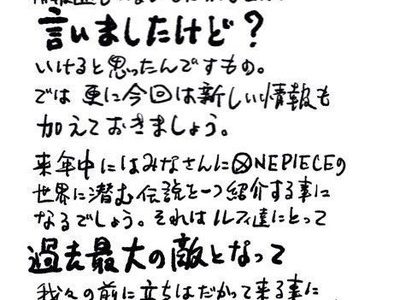 言いましたけど？
いけると思ったんですもの。
では 更に今回は新しい情報も
加えておきましょう。
来年中にはみなさんに⊗NEPIECEの
世界に潜む伝説を一つ紹介する事に
なるでしょう。それはルフィ達にとって
過去最大の敵となって
我々の前に立ちはだかって来る事に